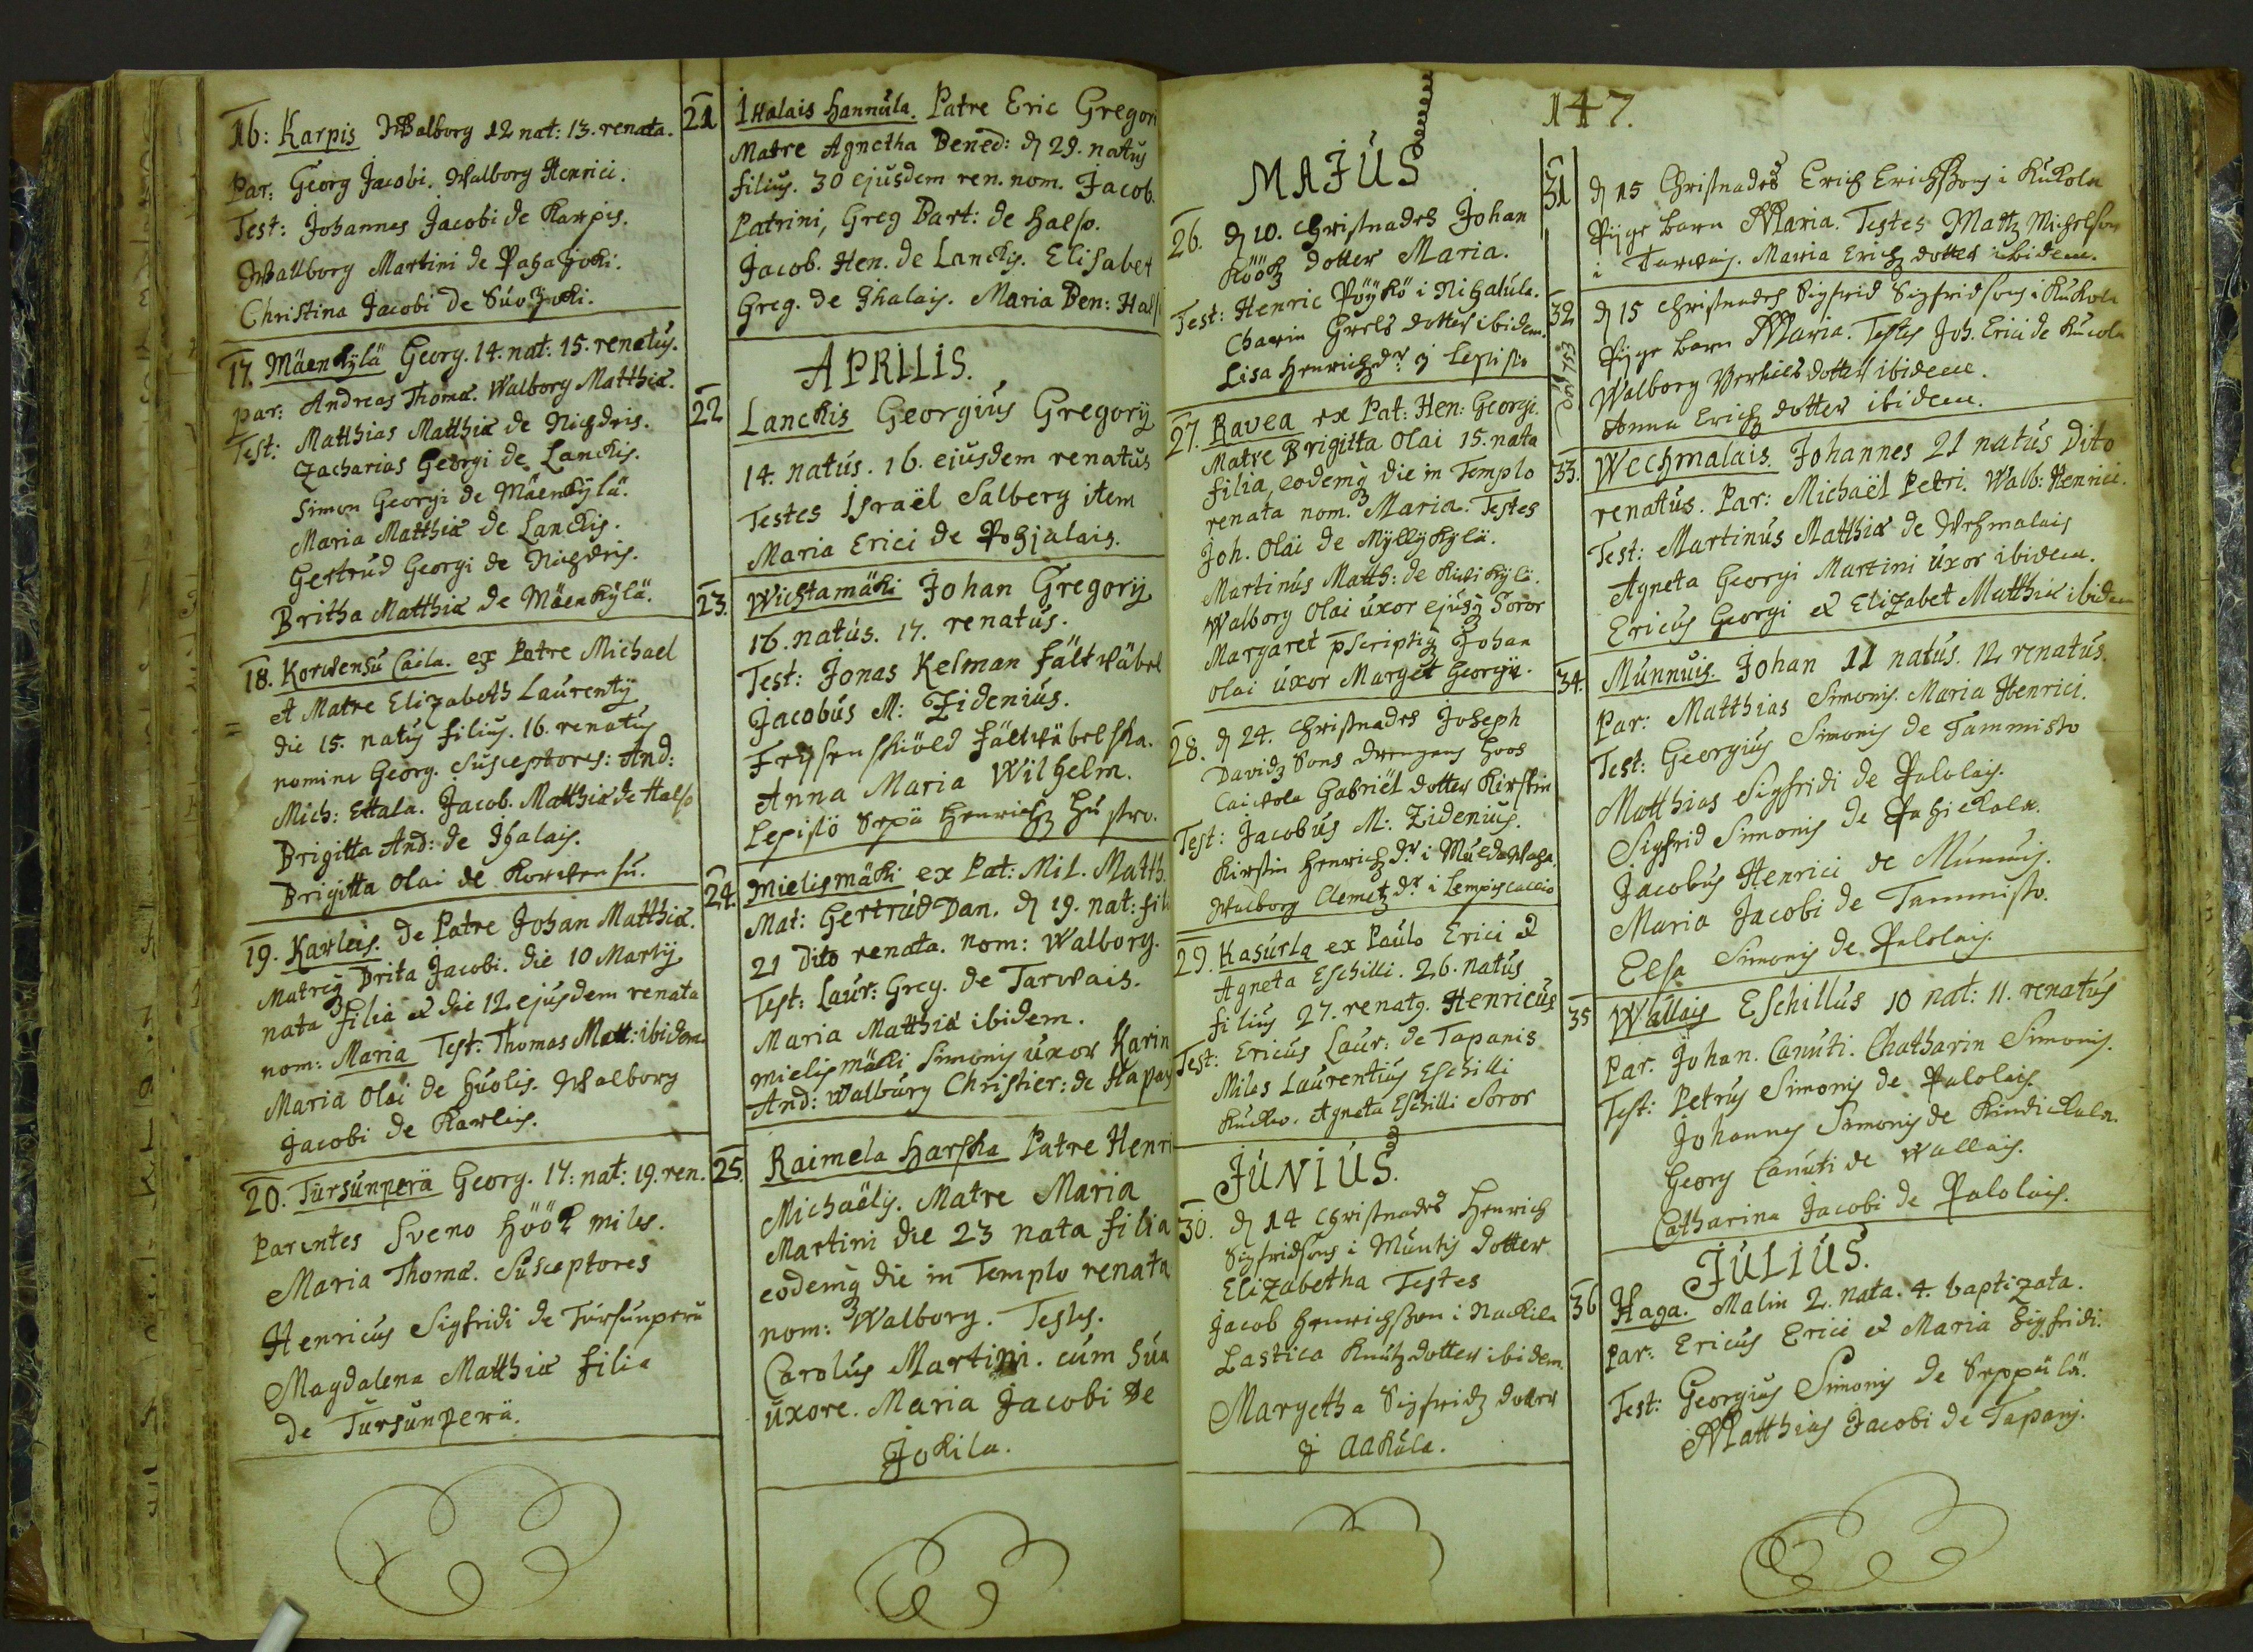 16: Karpis Walborg 12 nat: 13. renata.
Par: Georg Jacobi. Walborg Henrici.
Test: Johannes Jacobi de Karpis.
Wallborg Martini de Pahajoki.
Christina Jacobi de Suojoki.
17. Mäenkylä Georg. 14. nat: 15. renatus.
par: Andreas Thomæ. Walborg Matthiæ.
Test: Matthias Matthiæ de Nighdris.
Zacharias Georgi de Lanckis.
Simon Georgi de Mäenkylä.
Maria Matthiæ de Lanckis.
Gertrud Georgi de Nighdris.
Britha Matthiæ de Mäenkylä.
18. Korvensu Caila. ex Patre Michael
et Matre Elizabeth Laurentij
die 15. natus filius. 16. renatus
nomine Georg. Susceptores: And:
Mich: Ettala. Jacob. Matthiæ de Halso
Brigitta And: de Ihalais.
Brigitta Olai de Korvensu.
19. Karleis. de Patre Johan Matthiæ.
Matreq Brita Jacobi. die 10 Martij
nata filia et die 12 ejusdem renata
nom: Maria Test: Thomas Matt: ibidem
Maria Olai de Huolis. Walborg
Jacobi de Karleis.
20. Tursunperä Georg. 17: nat: 19. ren.
Parentes Sveno Höök miles.
Maria Thomæ. Susceptores
Henricus Sigfridi de Tursunperä
Magdalena Matthiæ filia
de Tursunperä.
21 Ihalais Hannula. Patre Eric Gregori
Matre Agnetha Bened: d 29. natus
filius. 30 ejusdem ren. nom. Jacob.
Patrini, Greg Bart: de Halso.
Jacob. Hen. de Lanckis. Elisabet
Greg. de Ihalais. Maria Ben: Hals
APRILIS.
22 Lanckis Georgius Gregorij
14. natus. 16. ejusdem renatus
Testes Israël Salberg item
Maria Erici de Pohjalais.
23. Wichtamäki Johan Gregorij
16. natus. 17. renatus.
Test: Jonas Kelman fältväbel
Jacobus M: Zidenius.
Freysenskiöld fältväbelska.
Anna Maria Wilhelm.
Lepistö Sepä Henrichz hustro.
24. Mielismäki ex Pat: Mil. Matth.
Mat: Gertrud Dan. d 19. nat: fil:
21 dito renata. nom: Walborg.
Test: Laur: Greg. de Tarvais.
Maria Matthiæ ibidem.
Mielismäki Simonis uxor Karin
And: Walburg Christier: de Hapas
25. Raimela Harska Patre Henri
Michaëlis. Matre Maria
Martini die 23 nata filia
eodemq die in Templo renata
nom: Walborg. Testes.
Carolus Martini. cum Sua
uxore. Maria Jacobi de
Jokila.
147.
MAJUS
26. d 10. Christnades Johan
Röökz dotter Maria.
Test: Henric Pöykö i Nihatula.
Charin Grels dotter ibidem.
Lisa Henrichz dr. i Lepistö
27. Ravea ex Pat: Hen: Georgi.
Matre Brigitta Olai 15. nata
filia, eodemq die in Templo
renata nom. Maria. Testes
Joh. Olai de Myllykylä.
Martinus Matth: de Kivikylä.
Walborg Olai uxor ejusq Soror
Margaret pscriptiq Johan
Olai uxor Marget Georgii.
28. d 24. Christnades Joseph
Davidz Sons drengens hoos
Caivola Gabriel dotter Kirstin
Test: Jacobus M: Zidenius.
Kirstin Henrichz dr i
Walborg Clemetz dr i Lempiscaccio
29. Kasurla ex Paulo Erici et
Agneta Eschilli. 26. natus
filius 27. renatq. Henricus
Test: Ericus Laur: de Tapanis
Miles Laurentius Eschilli
Kucko. Agneta Eschilli Soror
JUNIUS.
30. d 14 Christnades Henrich
Sigfridsons i Muntis dotter
Elizabetha Testes
Jacob Henrichsson i Nackila
Lastica Knutz dotter ibidem.
Margetha Sigfridz dotter
i Aakula.
31 d 15 Christnades Erich Erichssons i Kukola
Pijge barn Maria. Testes Mattz Michelson
i Tarvais. Maria Erichz dotter ibidem.
32 d 15 Christnades Sigfrid Sigfridsons i Kukola
Pijge barn Maria. Testes Joh. Erici de Kucola
Walborg dotter ibidem.
Anna Erichz dotter ibidem.
33. Wechmalais. Johannes 21 natus dito
renatus. Par: Michaël Petri. Walb: Henrici.
Test: Martinus Matthiæ de Wehmalais
Agneta Georgi Martini uxor ibidem.
Ericus Georgi et Elizabet Matthiæ ibidem
34. Munnuis. Johan 11 natus. 12 renatus.
Par: Matthias Simonis. Maria Henrici.
Test: Georgius Simonis de Tammisto
Matthias Sigfridi de Palolais.
Sigfrid Simonis de Pahickala.
Jacobus Henrici de Munnuis.
Maria Jacobi de Tammisto.
Elsa Simonis de Palolais.
35 Wallais Eschillus 10 nat: 11. renatus
Par. Johan. Canuti. Chatharin Simonis.
Test: Petrus Simonis de Palolais.
Johannes Simonis de Kindickala.
Georg Canuti de Wallais.
Catharina Jacobi de Palolais.
JULIUS.
36 Haga. Malin 2. nata. 4. baptizata.
Par: Ericus Erici et Maria Sigfridi.
Test: Georgius Simonis de Seppälä.
Matthias Jacobi de Tapanis.